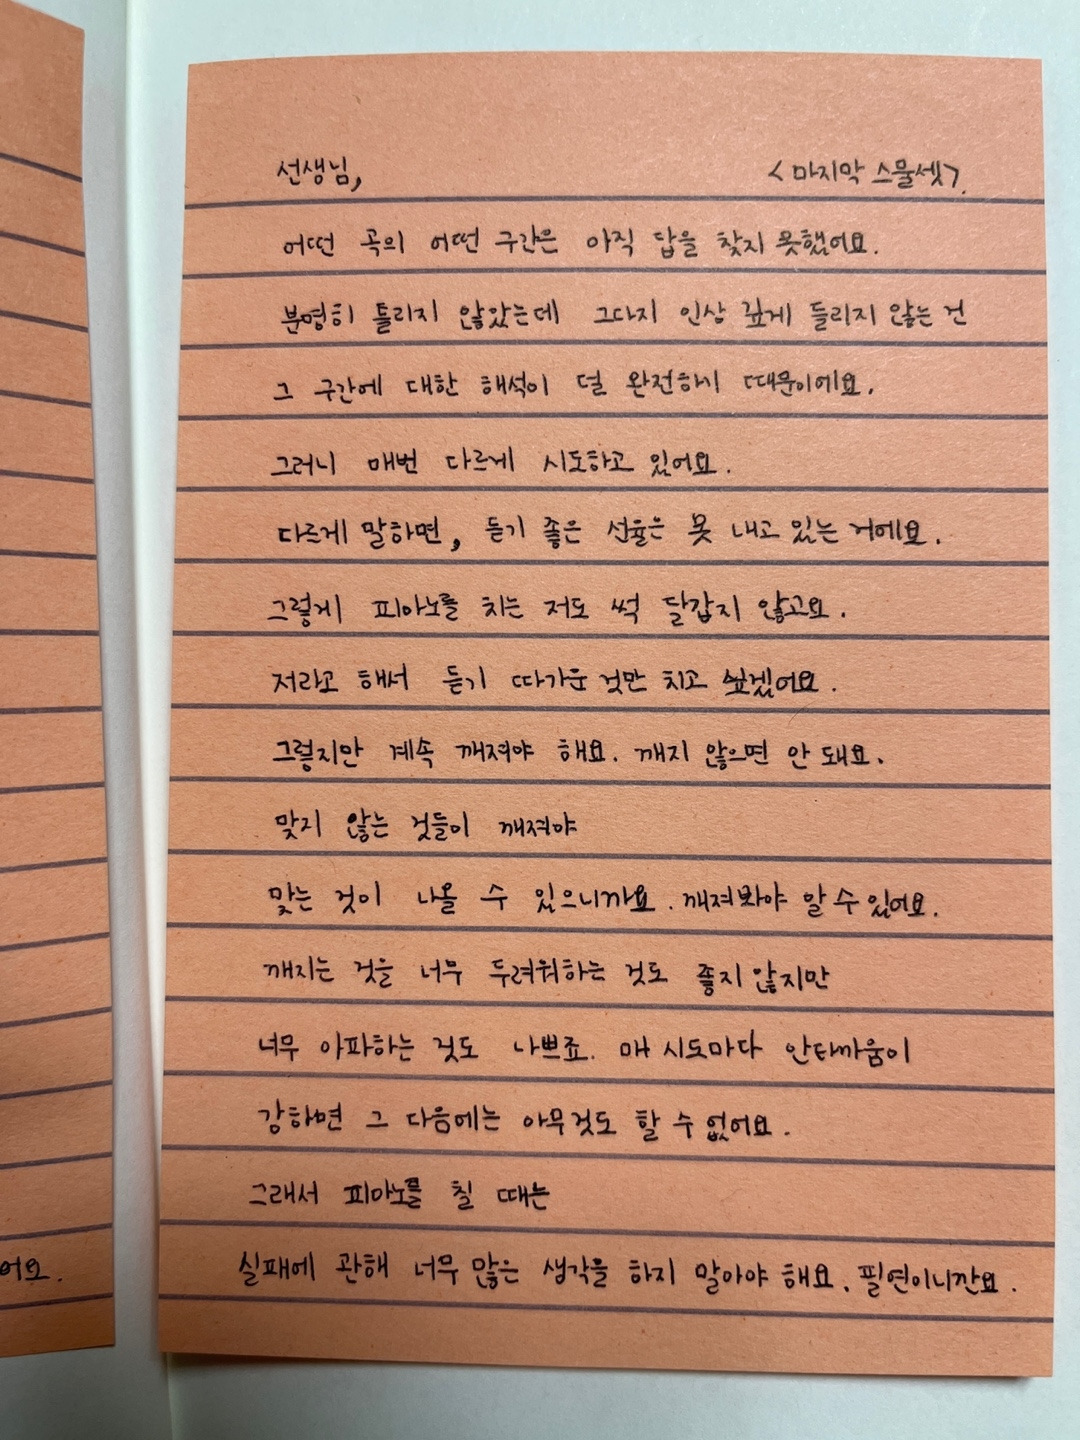 선생님,
<마지막 스물셋>.
어떤 곡의 어떤 구간은 아직 답을 찾지 못했어요.
분명히 틀리지 않았는데 그다지 인상 깊게 들리지 않는 건
그 구간에 대한 해석이 덜 완전하기 때문이에요.
그러니 매번 다르게 시도하고 있어요.
다르게 말하면, 듣기 좋은 선율은 못 내고 있는 거예요.
그렇게 피아노를 치는 저도 썩 달갑지 않고요.
저라고 해서 듣기 따가운 것만 치고 싶겠어요.
그렇지만 계속 깨져야 해요. 깨지 않으면 안 돼요.
맞지 않는 것들이 깨져야
맞는 것이 나올 수 있으니까요. 깨져봐야 알 수 있어요.
깨지는 것을 너무 두려워하는 것도 좋지 않지만
너무 아파하는 것도 나쁘죠. 매 시도마다 안타까움이
강하면 그 다음에는 아무것도 할 수 없어요.
그래서 피아노를 칠 때는
어요.
실패에 관해 너무 많은 생각을 하지 말아야 해요. 필연이니깐요.